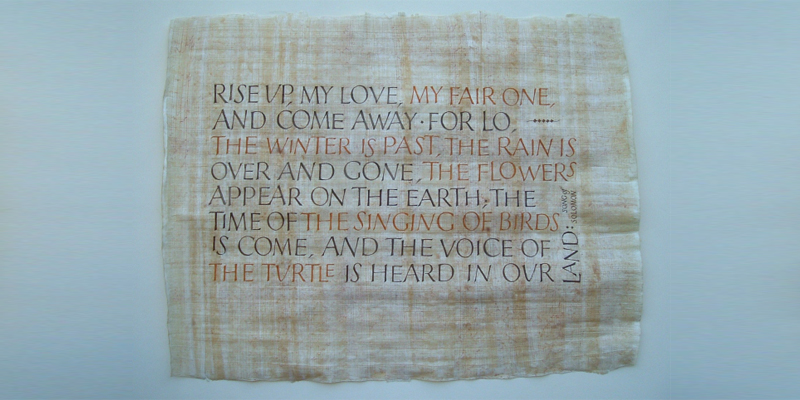 RISE UP, MY LOVE, MY FAIR ONE,
AND COME AWAY · FOR LO,
THE WINTER IS PAST, THE RAIN IS
OVER AND GONE, THE FLOWERS
APPEAR ON THE EARTH; THE
TIME OF THE SINGING OF BIRDS
IS COME, AND THE VOICE OF
THE TURTLE IS HEARD IN OUR
LAND:
SONG of
SOLOMON